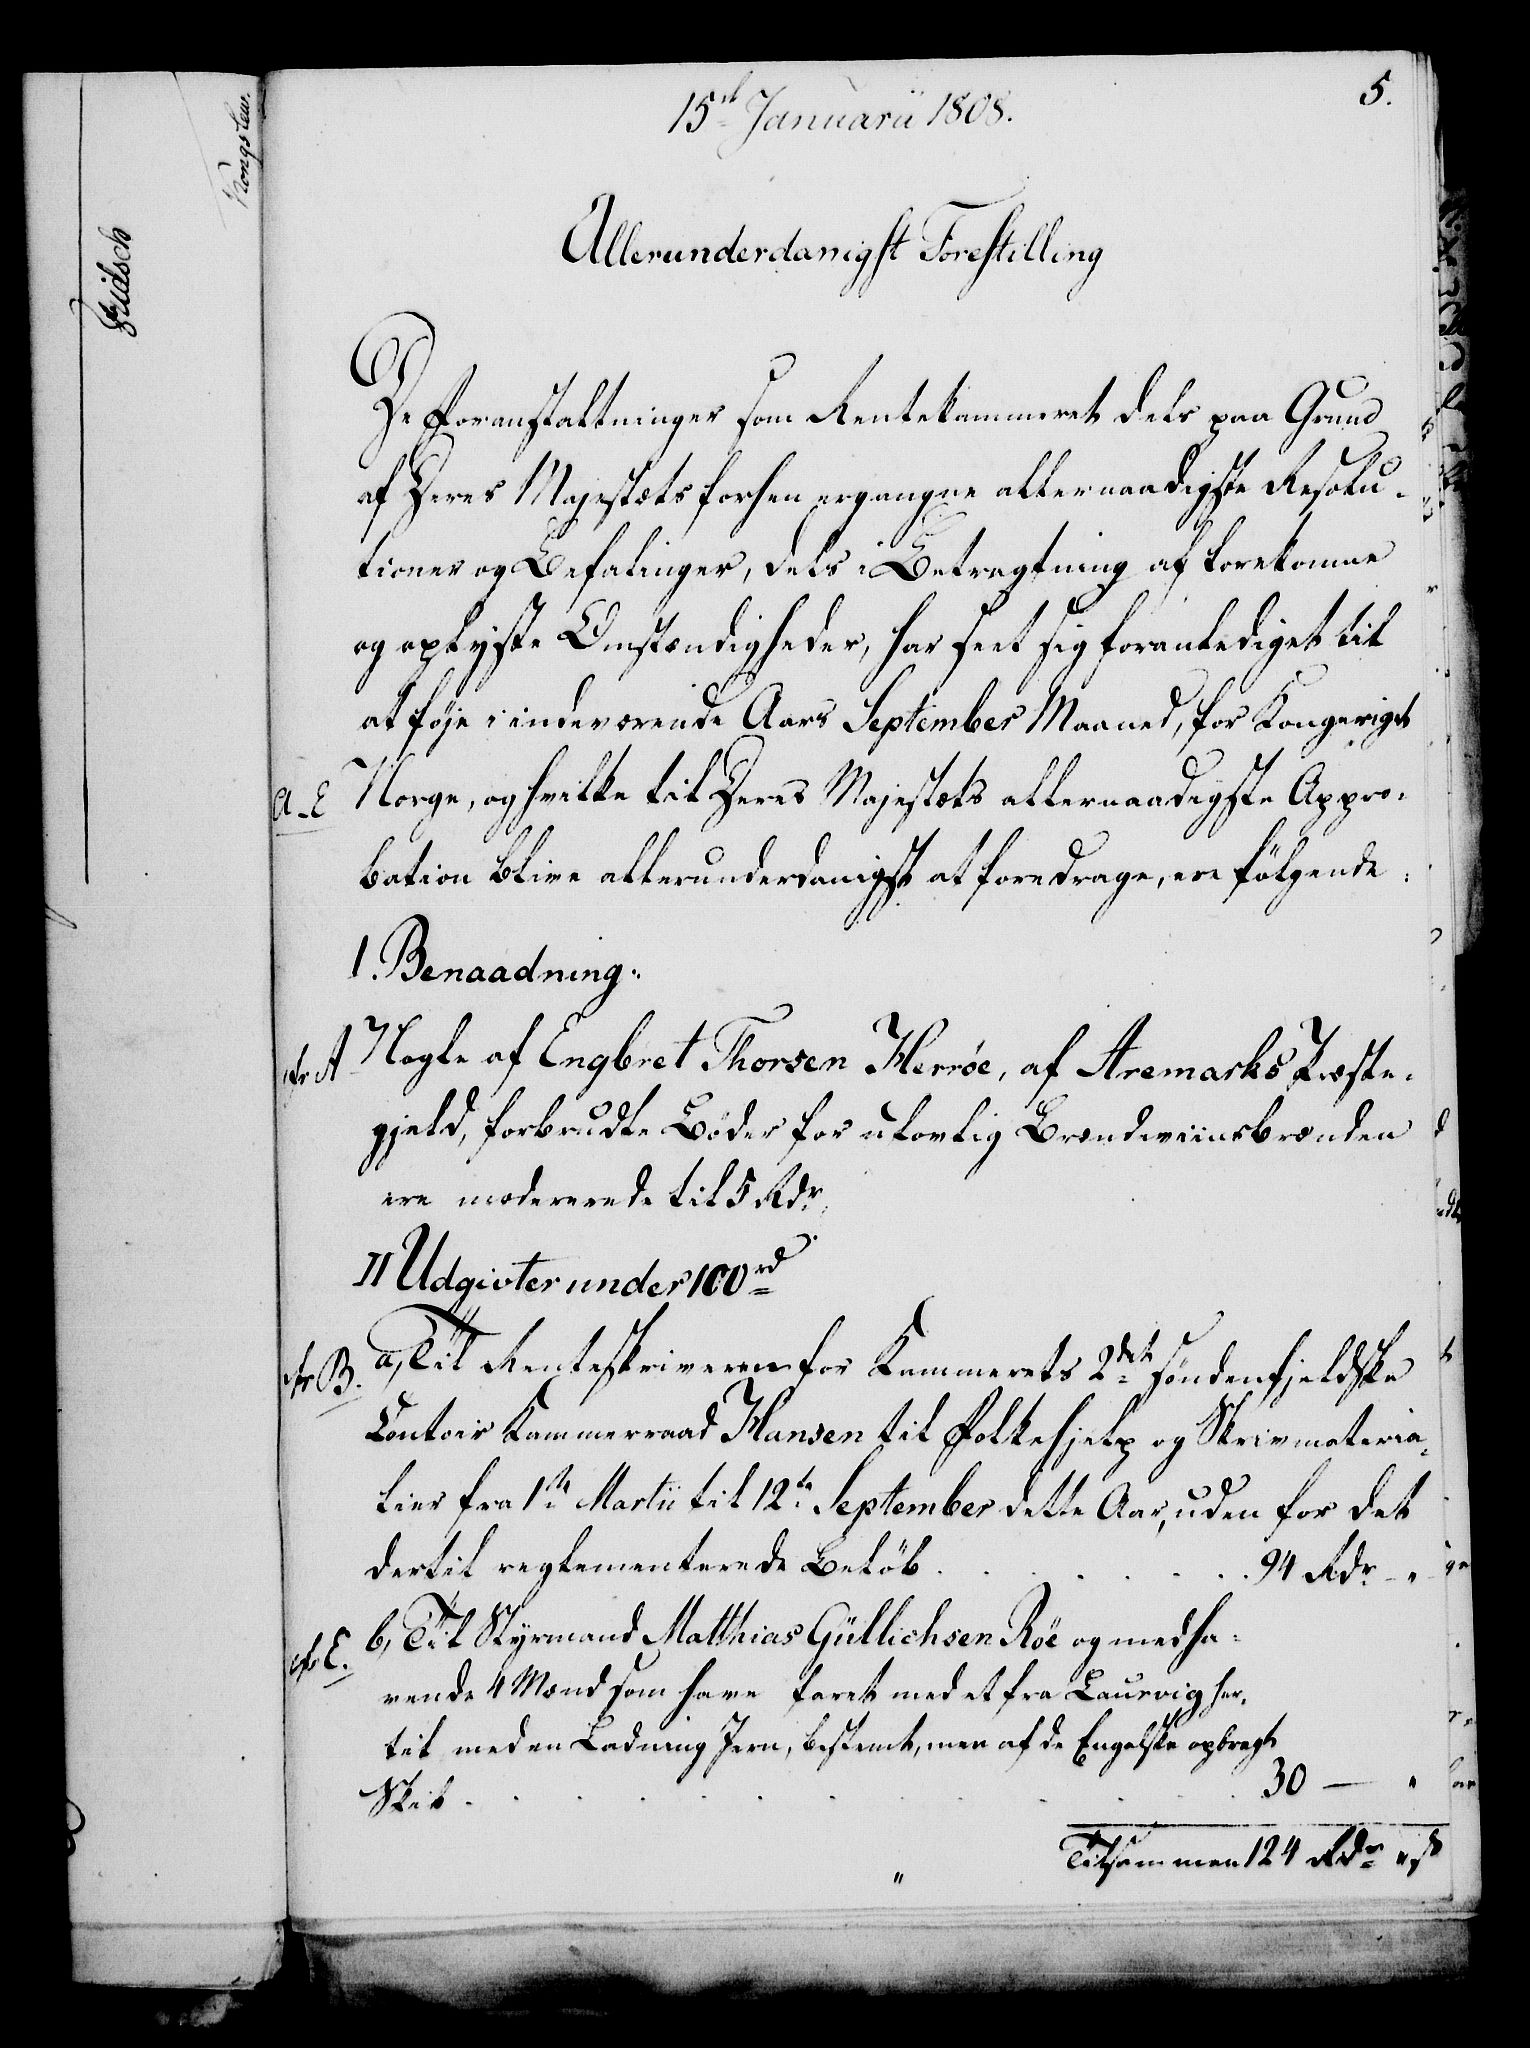 5.
15de Januarii 1808.
Allerunderdanigst Forestilling
De Foranstaltninger som Rentekammeret dels paa Grund
af Deres Majestæts forhen ergangne allernaadigste Resolu-
tioner og Befalinger, dels i Betragtning af forekomne
og oplyste Omstændigheder, har seet sig foranlediget til
at føje i indeværende Aars September Maaned, for Kongeriget
A-E Norge, og hvilke til Deres Majestæts allernaadigste Appro-
bation blive allerunderdanigst at foredrage, ere følgende:
I. Benaadning:
cfr A Nogle af Engbret Thorsen Herröe, af Aremarks Præste-
gjeld, forbrudte Bøder for ulovlig Brændeviinsbrænden
ere modererede til 5 Rdr.
II Udgivter under 100rd
cfr B. a, Til Renteskriveren for Kammerets 2det søndenfjeldske
Contoir Kammerraad Hansen til Folkehjelp og Skrivmateria-
lier fra 1ste Martii til 12te September dette Aar, uden for det
dertil reglementerede Beløb . . . . . . 94 Rdr - "
cfr E. b, Til Styrmand Matthias Güllichsen Röe og medha-
vende 4 Mænd som have faret med et fra Laurvig her-
til med en Ladning Jern, bestemt, men af de Engelske opbragt
Skib . . . . . . . . . . . 30 — "
Tilsammen 124 Rdr " s
Fridsch
Kongslew.